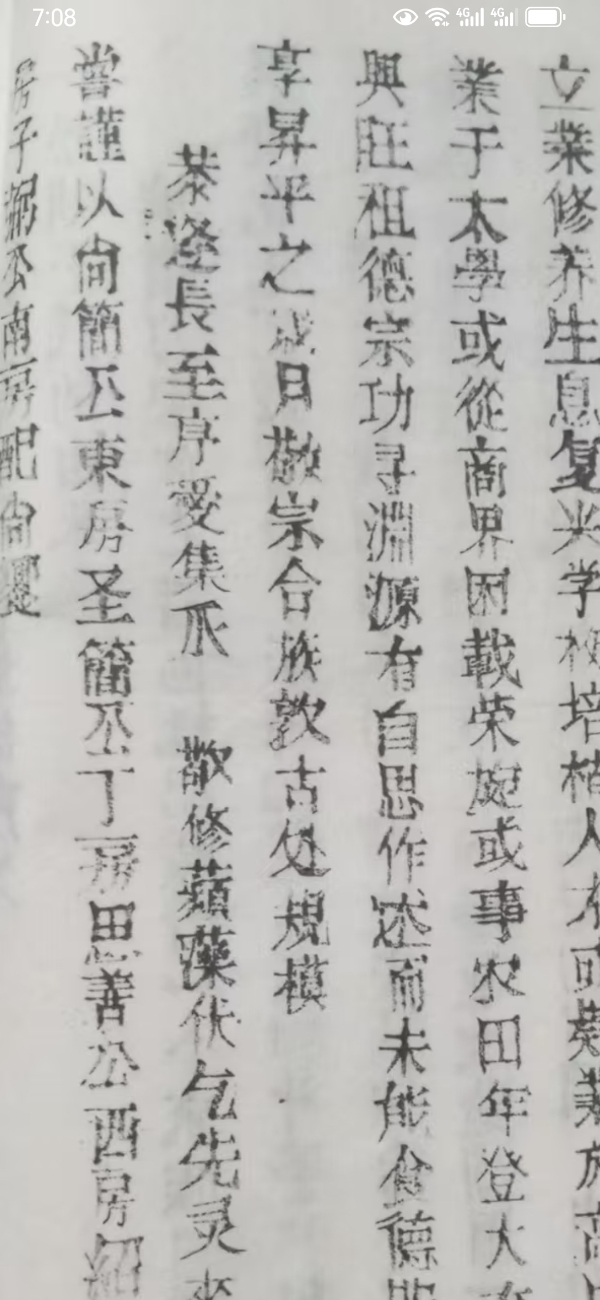 7:08
立業修养生息复兴学校培植人才或
業于太學或從商界困載荣旋或事农田年登大有
興旺祖德宗功寻淵源有自思作述而未能食德
享昇平之 日敬宗合族敦古处規模
恭逢長至序爱集爪 敬修蘋藻伏乞先灵來
嘗謹以尚簡公東房圣簡公丁房思善公西房紹
房子 公南房配尚